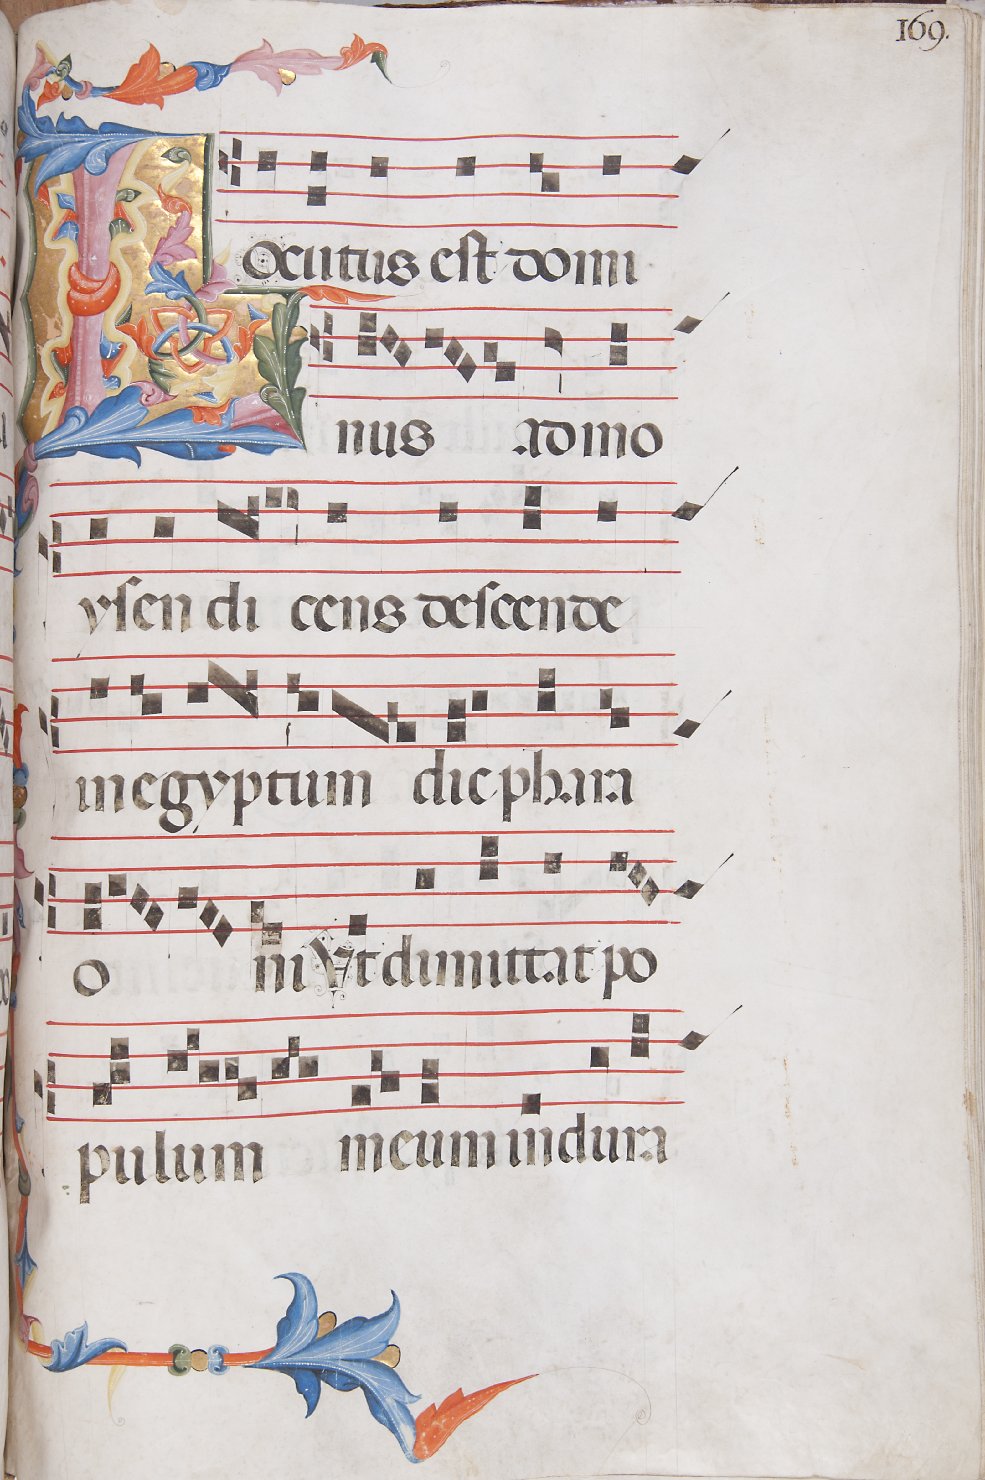 169.
Locutus est domi
nus ad mo
ysen di cens descende
in egyptum dic phara
o ni Vt dimittat po
pulum meum indura